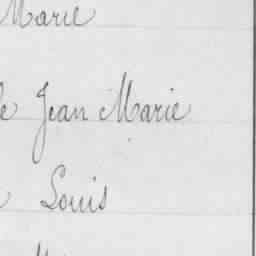 Marie
Jean Marie
Louis